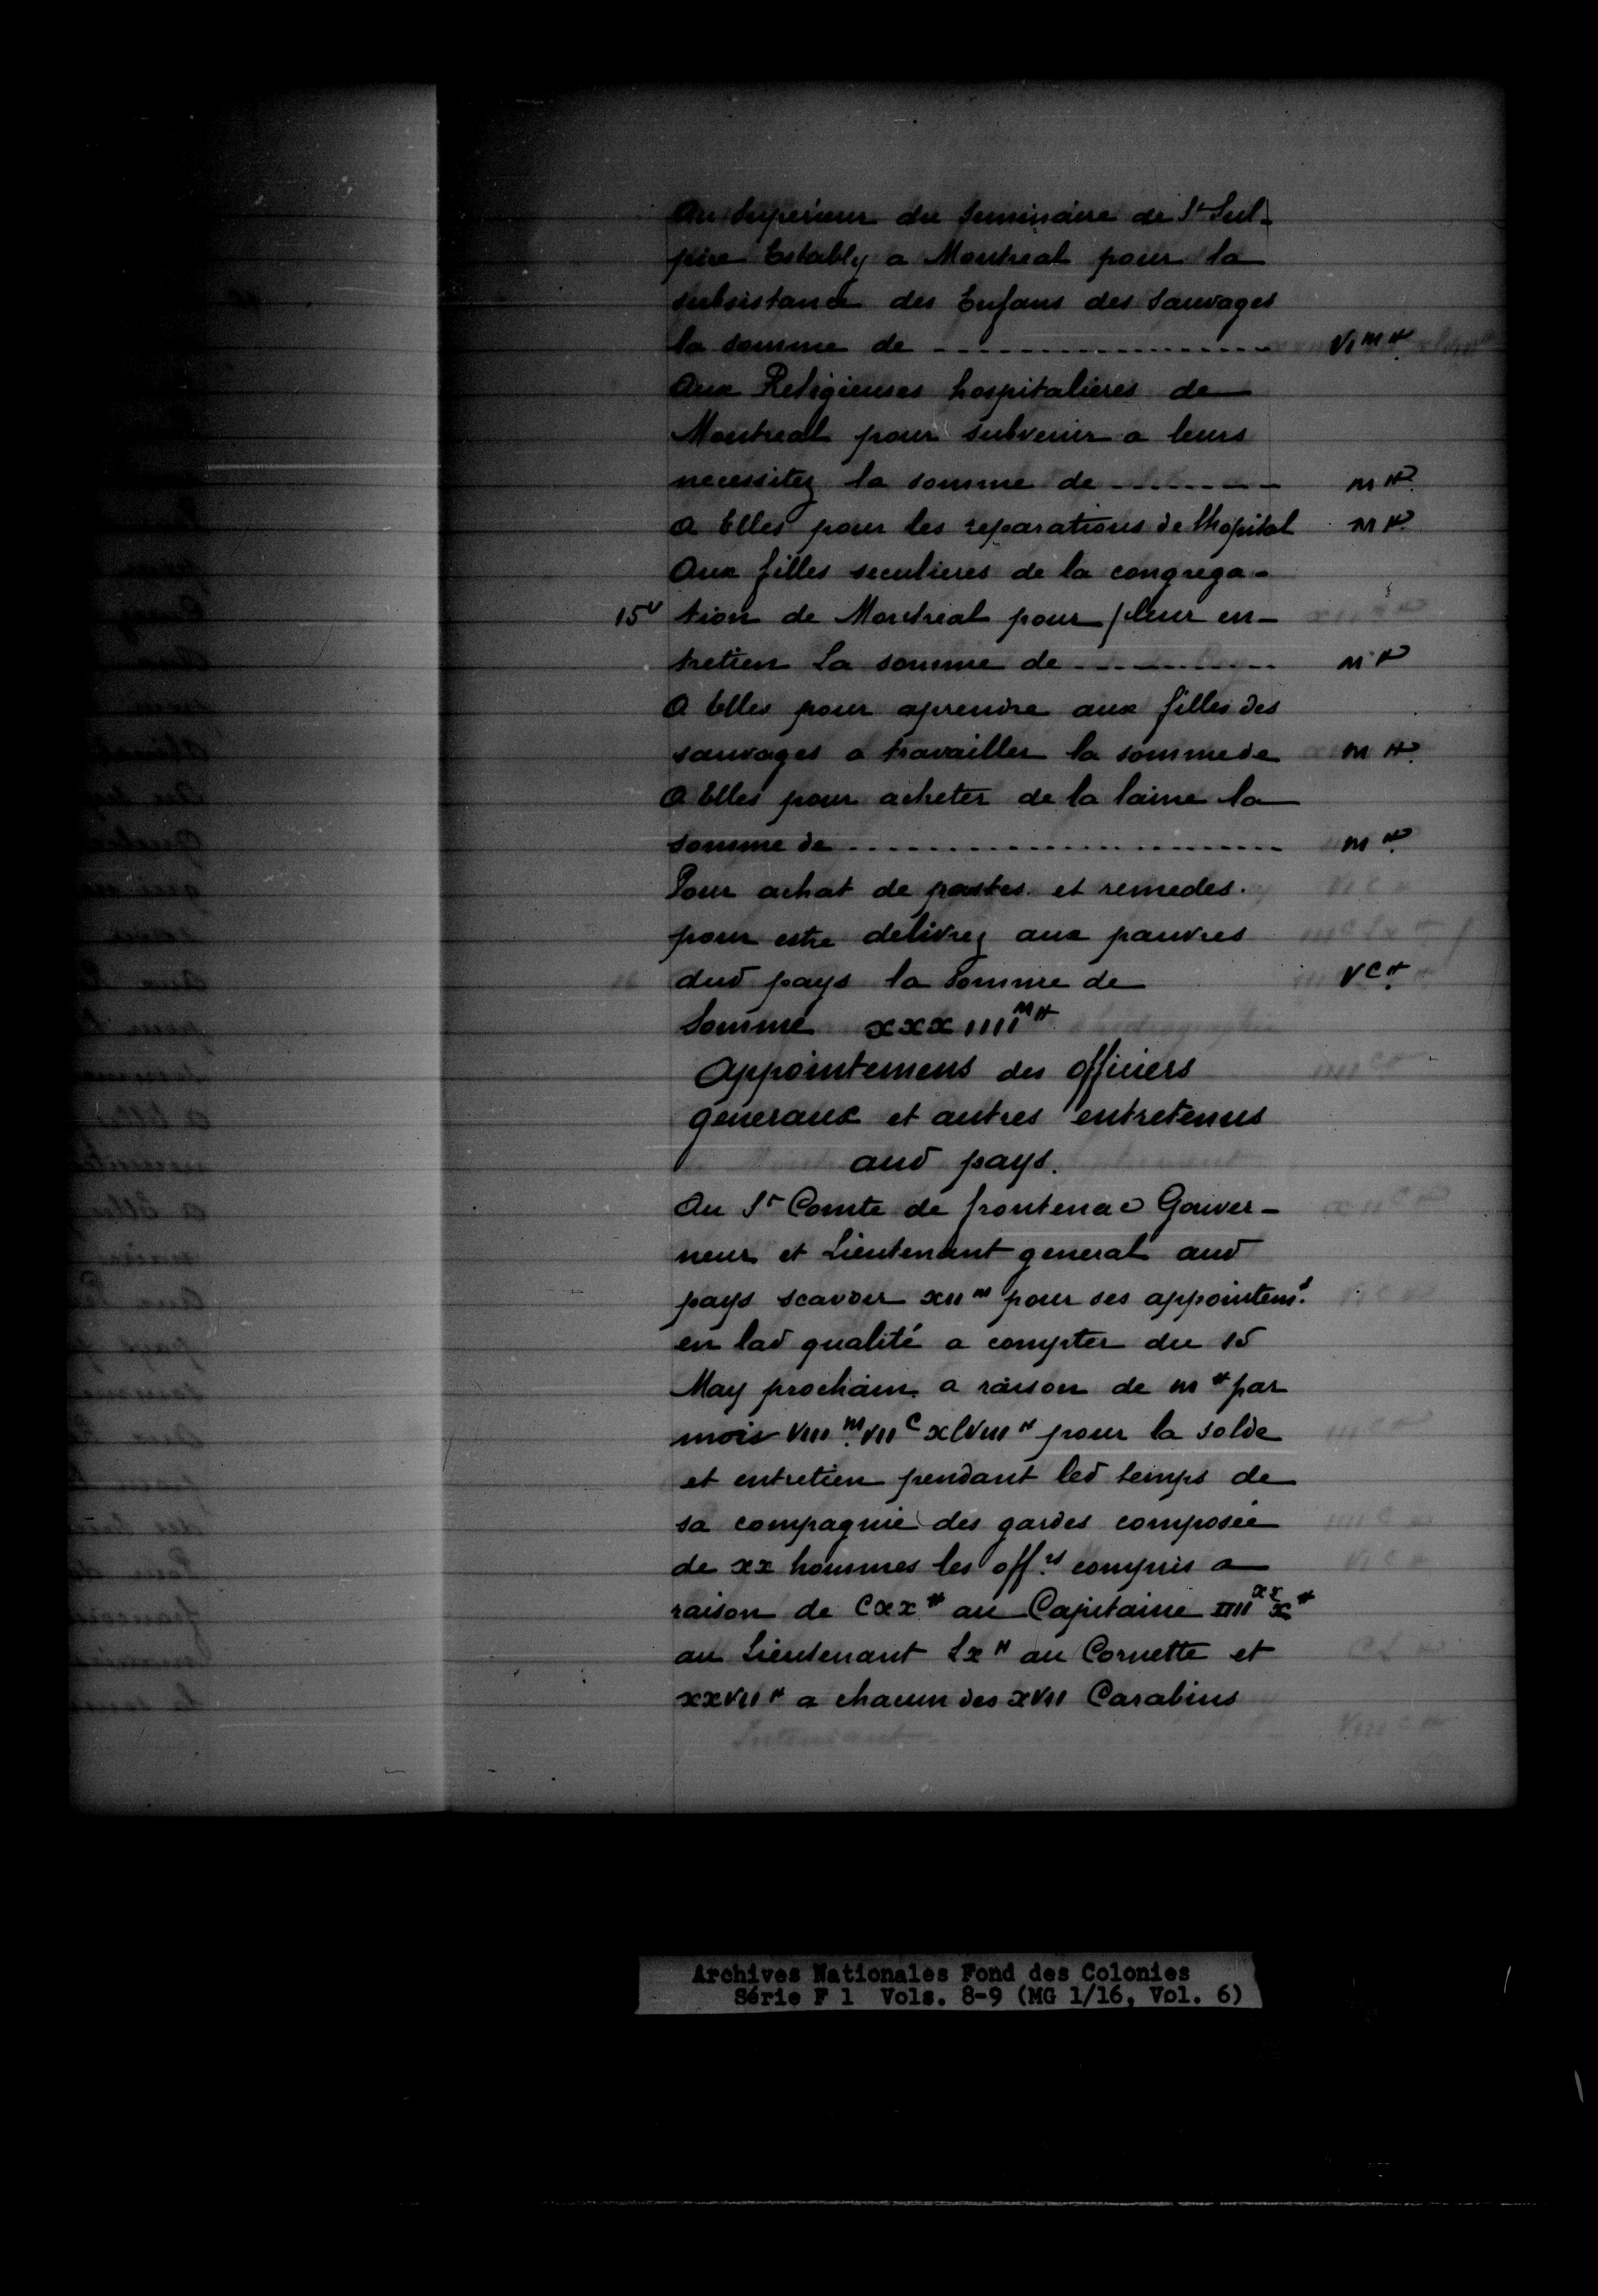 Au Superieur du Seminaire de St Sul-
pice Estably a Montreal pour la
subsistance des Enfans des Sauvages
la somme de ------------------ VI M ₶
Aux Religieuses hospitalieres de
Montreal pour subvenir a leurs
necessitez la somme de ------- M ₶
a Elles pour les reparations de lhopital M ₶
Aux filles seculieres de la congrega-
15v tion de Montreal pour / leur en-
tretien La somme de ---------- M ₶
a Elles pour aprendre aux filles des
sauvages a travailler la somme de M ₶
a Elles pour acheter de la laine la
somme de ...................... M ₶
Pour achat de pastes et remedes
pour estre delivrez aux pauvres
dud pays la somme de VC ₶
Somme xxxIIII M ₶
Appointemens des officiers
generaux et autres entretenus
aud pays.
Au Sr Comte de frontenac Gouver-
neur et Lieutenant general aud
pays scavoir XII m pour ses appointem.s
en lad qualité a compter du 15
May prochain a raison de m ₶ par
mois VIII M VII C xlVIII ₶ pour la solde
et entretien pendant led temps de
sa compagnie des gardes composée
de xx hommes les off.rs compris a
raison de Cxx ₶ au Capitaine IIII xx x ₶
au Lieutenant Lx ₶ au Cornette et
xxVII ₶ a chacun des xVII Carabins
Archives Nationales Fond des Colonies
Série F 1 Vols. 8-9 (MG 1/16, Vol. 6)